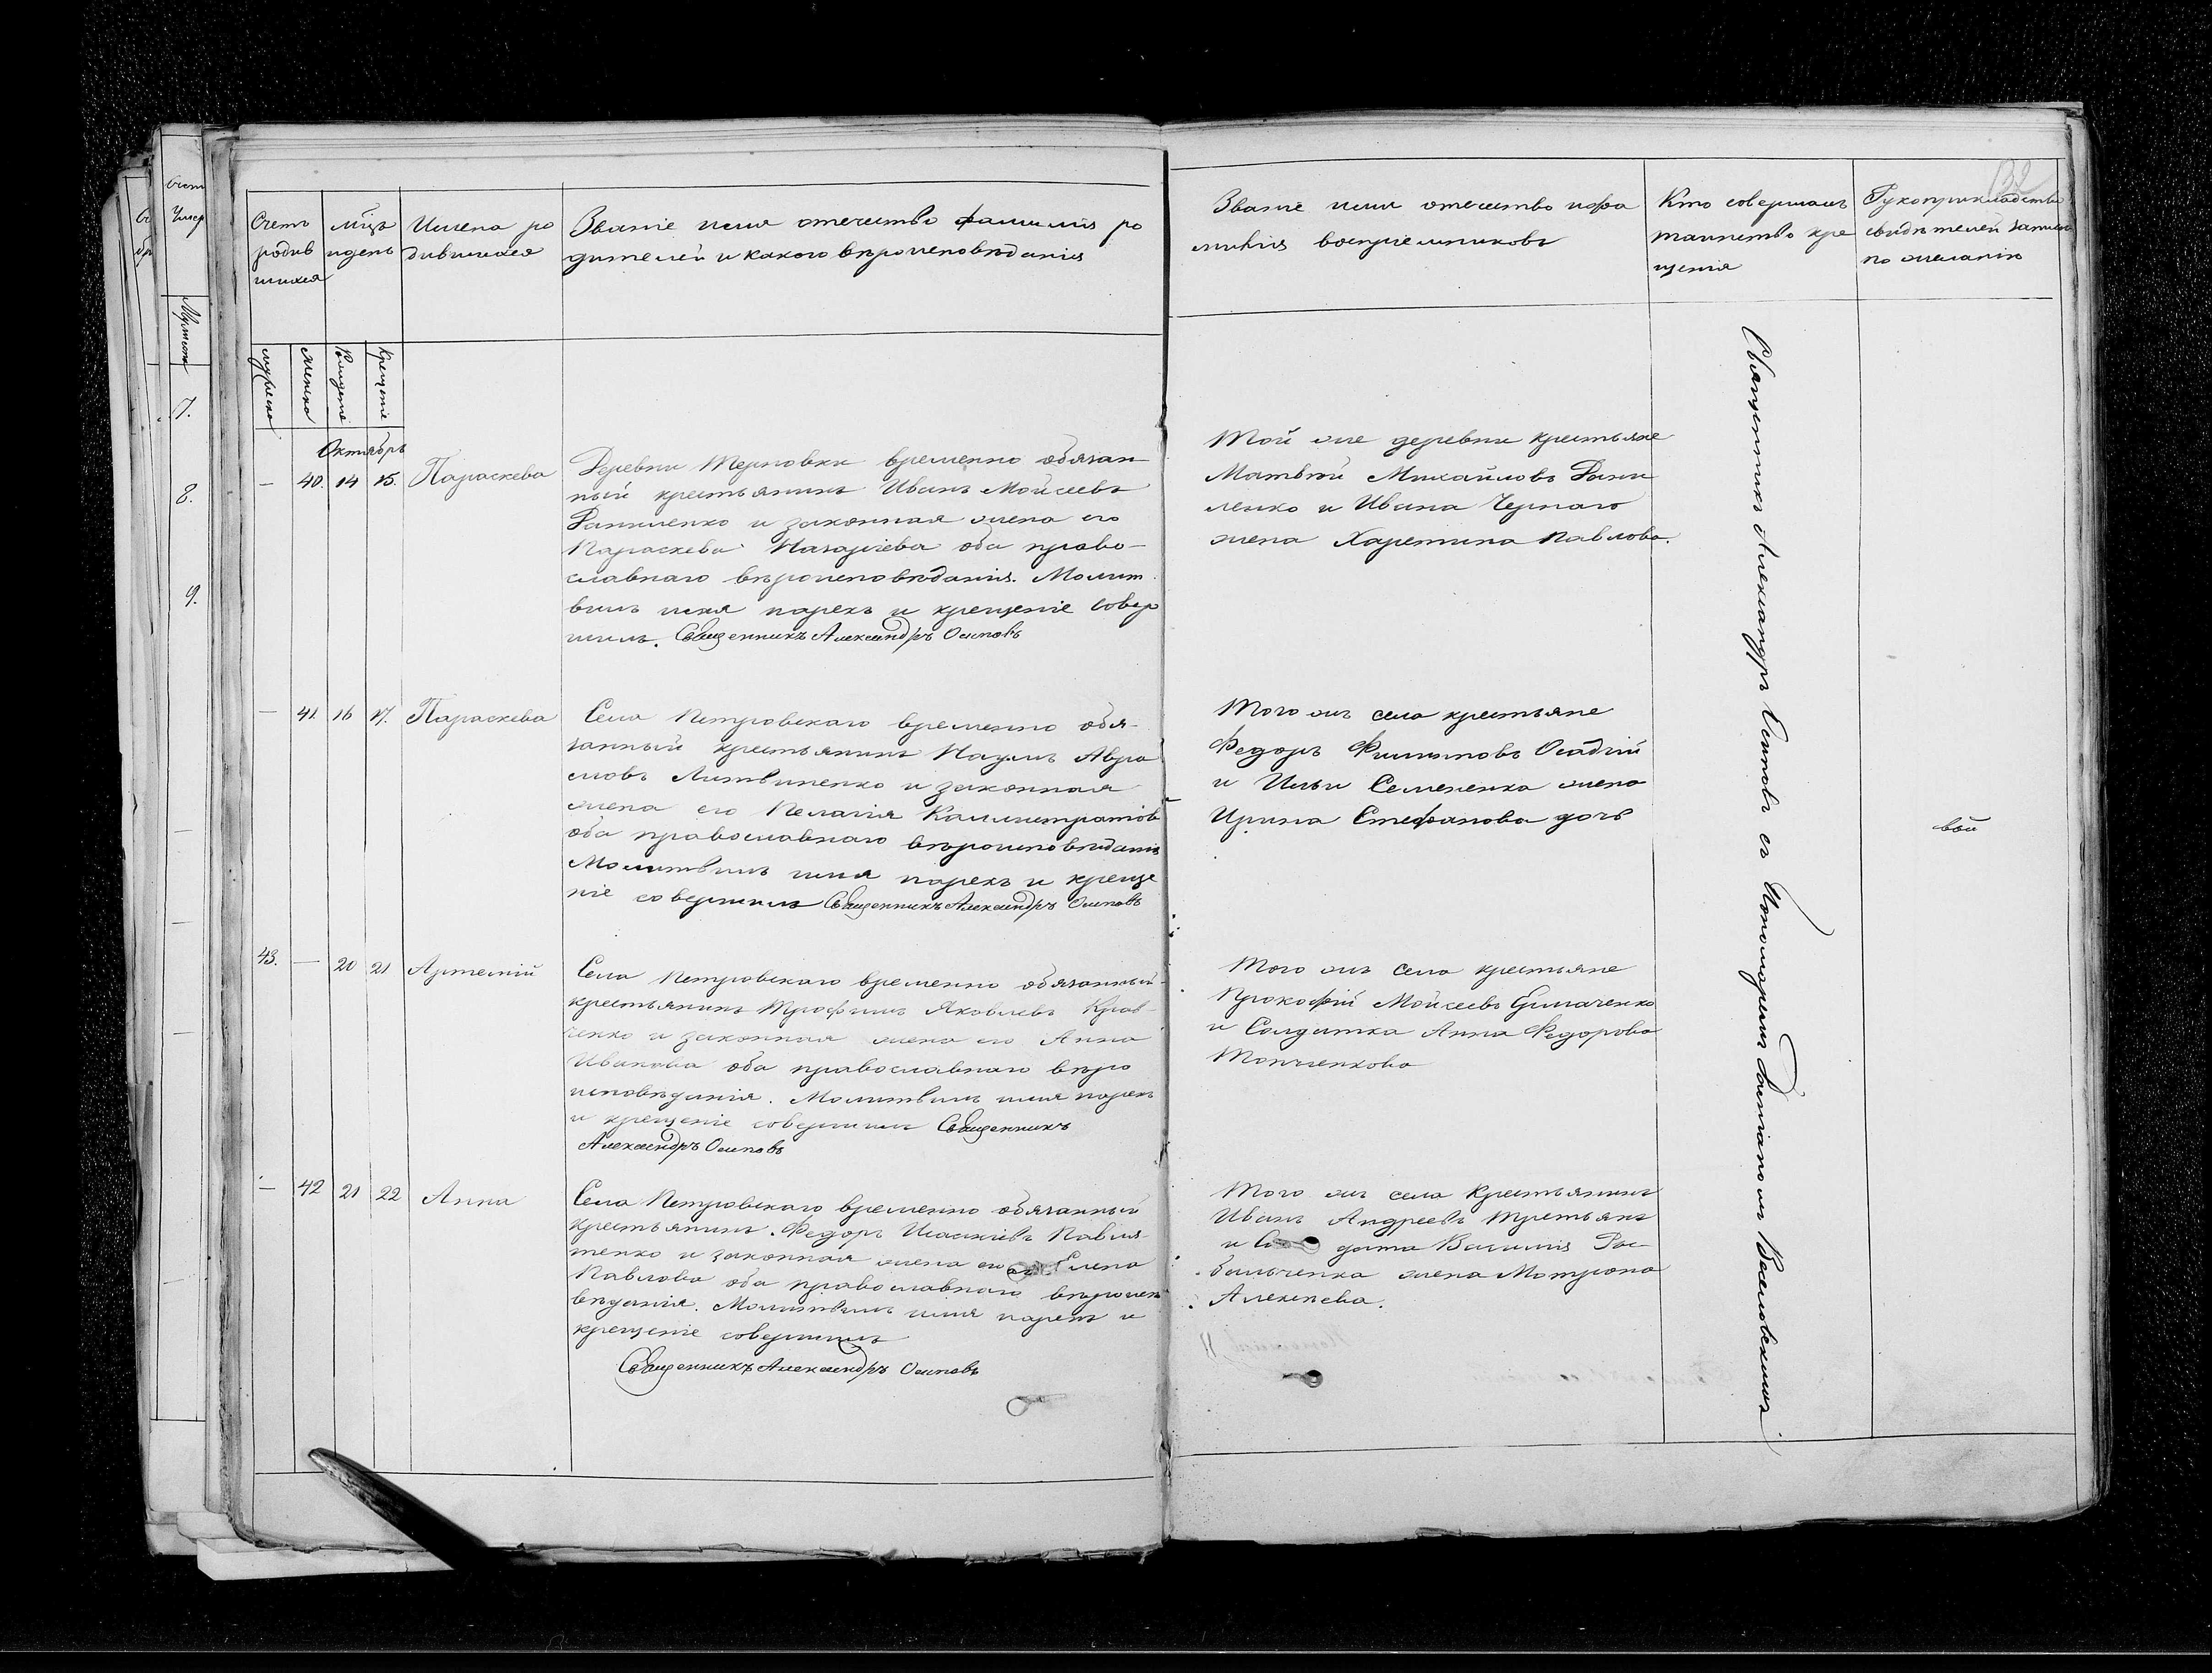 Счетъ родив шихся
мцъ и день
Имена ро дившихся
Званіе имя отечество фамилія ро
дителей и какого вѣроисповѣданія
Званіе имя отечество и фа
милія воспріемниковъ
Кто совершалъ
таинство кре
щенія
Рукоприкладство
свидѣтелей записи
по желанію
132
мужеска
женска
Рожденіе
Крещеніе
Октябрь
— 40. 14 15. Параскева
Деревни Терновки временно обязан-
ный крестьянинъ Иванъ Мойсеевъ
Даниленко и законная жена его
Параскева Назаріева оба право-
славнаго вѣроисповѣданія. Молит
вилъ имя нарекъ и крещеніе совер
шилъ. Священникъ Александръ Осиповъ
Той же деревни крестьяне
Матвѣй Михайловъ Дани
ленко и Ивана Чернаго
жена Харетина Павлова.
— 41 16 17. Параскева
Села Петровскаго временно обя-
занный крестьянинъ Наумъ Авра
мовъ Литвиненко и законная
жена его Пелагія Каллистратова
оба православнаго вѣроисповѣданія
Молитвилъ имя нарекъ и креще
ніе совершилъ Священникъ Александръ Осиповъ
Того жъ села крестьяне
Федоръ Филиповъ Осадчій
и Ильи Семененка жена
Ирина Стефанова дочь
вой
43. — 20 21 Артемій
Села Петровскаго временно обязанный
крестьянинъ Трофимъ Яковлевъ Крав-
ченко и законная жена его Анна
Иванова оба православнаго вѣро
исповѣданія. Молитвилъ имя нарекъ
и крещеніе совершилъ Священникъ
Александръ Осиповъ
Того жъ села крестьяне
Прокофій Мойсеевъ
и Солдатка Анна Федорова
— 42 21 22 Анна
Села Петровскаго временно обязанный
крестьянинъ Федоръ Исаакіевъ Павля
тенко и законная жена его Елена
Павлова оба православнаго вѣроиспо
вѣданія. Молитвилъ имя нарекъ и
крещеніе совершилъ
Священникъ Александръ Осиповъ
Того жъ села Крестьянинъ
Иванъ Андреевъ Третьякъ
и Со дата Василія Рос
бильченка жена Мотрона
Алексѣева.
Священникъ Александръ Осиповъ съ Пономаремъ Даміаномъ Веселовскимъ
Счет
Умер
7.
8.
9.